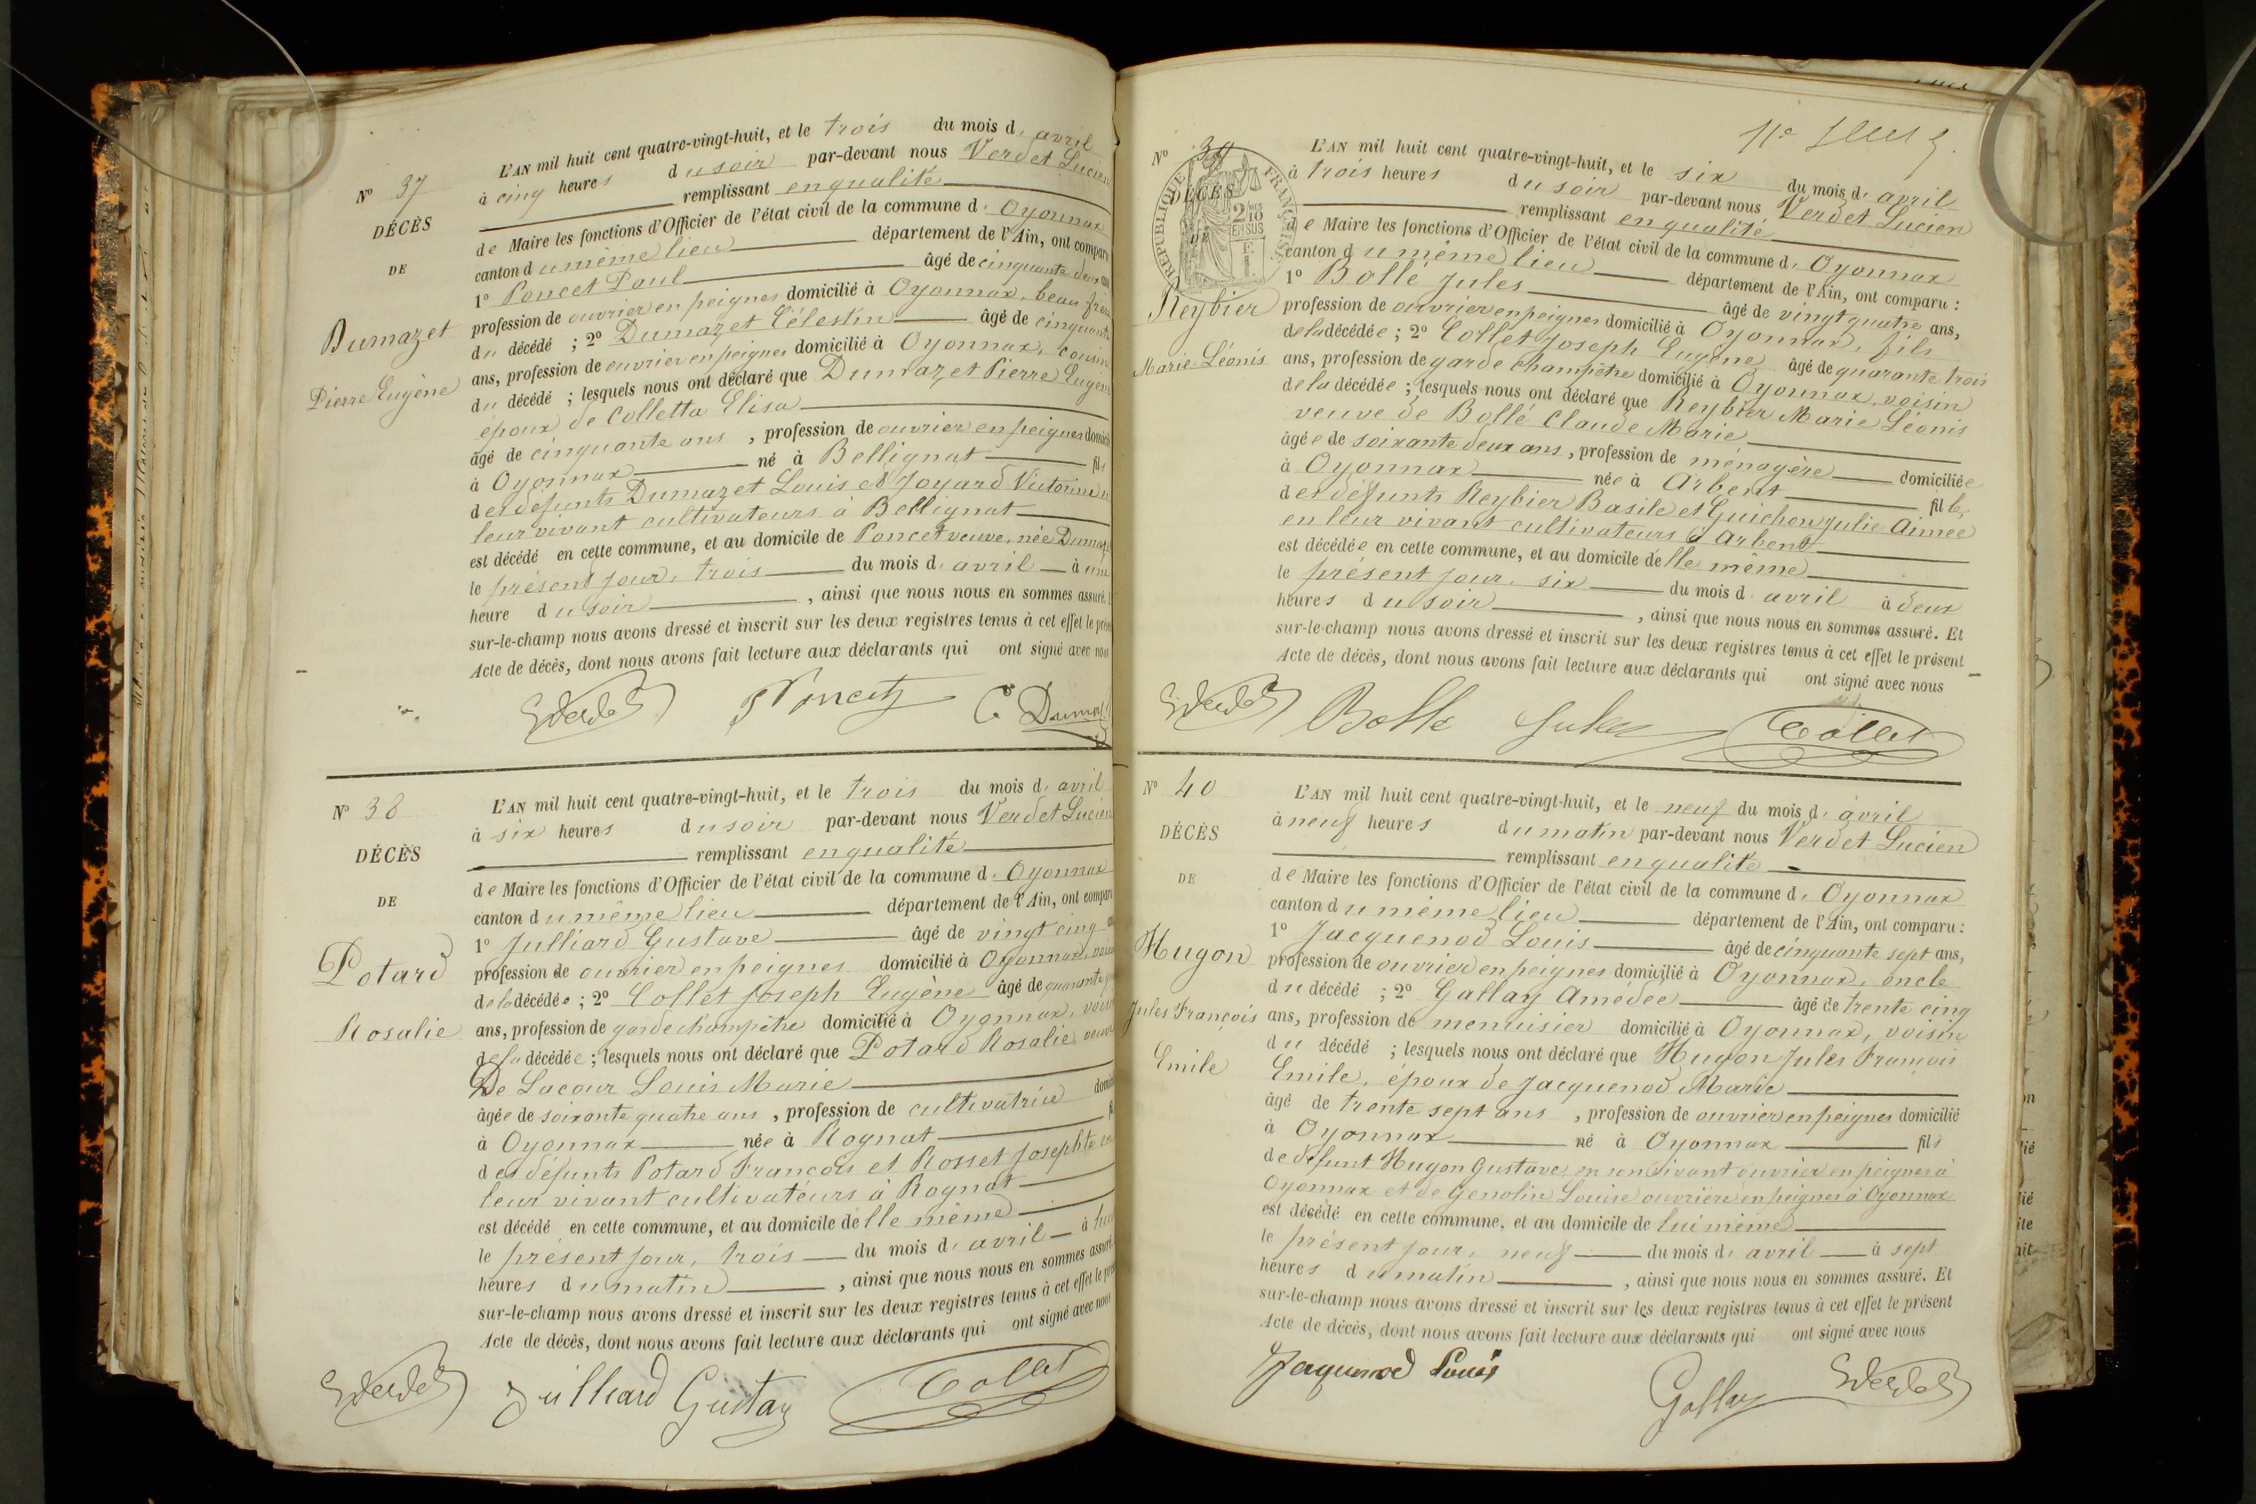 N° 37
DÉCÈS
DE
Dumazet
Pierre Eugène
L'AN mil huit cent quatre-vingt-huit, et le trois du mois d' avril
à cinq heures du soir par-devant nous Verdet Lucien
remplissant en qualité
de Maire les fonctions d'Officier de l'état civil de la commune d' Oyonnax
canton du même lieu département de l'Ain, ont comparu
1° Poncet Paul âgé de cinquante deux ans
profession de ouvrier en peignes domicilié à Oyonnax, beau frère
du décédé ; 2° Dumazet Célestin âgé de cinquante
ans, profession de ouvrier en peignes domicilié à Oyonnax, cousin
du décédé ; lesquels nous ont déclaré que Dumazet Pierre Eugène
époux de Colletta Elisa
âgé de cinquante ans , profession de ouvrier en peignes domicilié
à Oyonnax né à Bellignat fils
des défunts Dumazet Louis et Joyard Victorine
leur vivant cultivateurs à Bellignat
est décédé en cette commune, et au domicile de Poncet veuve, née Dumaz
le présent jour, trois du mois d' avril à une
heure du soir , ainsi que nous nous en sommes assuré.
sur-le-champ nous avons dressé et inscrit sur les deux registres tenus à cet effet le prés
Acte de décès, dont nous avons fait lecture aux déclarants qui ont signé avec nous
Verdet Poncet C Dumaz
N° 38
DÉCÈS
DE
Potard
Rosalie
L'AN mil huit cent quatre-vingt-huit, et le trois du mois d' avril
à six heures du soir par-devant nous Verdet Lucien
remplissant en qualité
de Maire les fonctions d'Officier de l'état civil de la commune d' Oyonnax
canton du même lieu département de l'Ain, ont comparu
1° Julliard Gustave âgé de vingt cinq
profession de ouvrier en peignes domicilié à Oyonnax, voisin
de la décédée ; 2° Collet Joseph Eugène âgé de quarante
ans, profession de garde champêtre domicilié à Oyonnax, voisin
de la décédée ; lesquels nous ont déclaré que Potard Rosalie veuve
De Lacour Louis Marie
âgée de soixante quatre ans , profession de cultivatrice domici
à Oyonnax née à Rognat fi
des défunts Potard François et Rosset Josephte
leur vivant cultivateurs à Rognat
est décédé en cette commune, et au domicile de elle même
le présent jour, trois du mois d' avril à
heures du matin , ainsi que nous nous en sommes assuré.
sur-le-champ nous avons dressé et inscrit sur les deux registres tenus à cet effet le prés
Acte de décès, dont nous avons fait lecture aux déclarants qui ont signé avec nous
Verdet Julliard Gustav Collet
N° 39
DÉCÈS
DE
RÉPUBLIQUE FRANÇAISE
2/10
EN SUS
Reybier
Marie Léonis
L'AN mil huit cent quatre-vingt-huit, et le six du mois d' avril
à trois heures du soir par-devant nous Verdet Lucien
remplissant en qualité
de Maire les fonctions d'Officier de l'état civil de la commune d' Oyonnax
canton du même lieu département de l'Ain, ont comparu :
1° Bollé Jules âgé de vingt quatre ans,
profession de ouvrier en peignes domicilié à Oyonnax, fils
de la décédée ; 2° Collet Joseph Eugène âgé de quarante trois
ans, profession de garde champêtre domicilié à Oyonnax, voisin
de la décédée ; lesquels nous ont déclaré que Reybier Marie Léonis
veuve de Bollé Claude Marie
âgée de soixante deux ans , profession de ménagère domiciliée
à Oyonnax née à Arbent fille
des défunts Reybier Basile et Guichon Julie Aimée
en leur vivant cultivateurs à Arbent
est décédée en cette commune, et au domicile de elle même
le présent jour, six du mois d' avril à deux
heures du soir , ainsi que nous nous en sommes assuré. Et
sur-le-champ nous avons dressé et inscrit sur les deux registres tenus à cet effet le présent
Acte de décès, dont nous avons fait lecture aux déclarants qui ont signé avec nous
Verdet Bolle Jules Collet
N° 40
DÉCÈS
DE
Hugon
Jules François
Emile
L'AN mil huit cent quatre-vingt-huit, et le neuf du mois d' avril
à neuf heures du matin par-devant nous Verdet Lucien
remplissant en qualité
de Maire les fonctions d'Officier de l'état civil de la commune d' Oyonnax
canton du même lieu département de l'Ain, ont comparu :
1° Jacquenod Louis âgé de cinquante sept ans,
profession de ouvrier en peignes domicilié à Oyonnax, oncle
du décédé ; 2° Gallay Amédée âgé de trente cinq
ans, profession de menuisier domicilié à Oyonnax, voisin
du décédé ; lesquels nous ont déclaré que Hugon Jules François
Emile, époux de Jacquenod Marie
âgé de trente sept ans , profession de ouvrier en peignes domicilié
à Oyonnax né à Oyonnax fils
de défunt Hugon Gustave, en son vivant ouvrier en peignes à
Oyonnax et de Genolin Louise ouvrière en peignes à Oyonnax
est décédé en cette commune, et au domicile de lui même
le présent jour, neuf du mois d' avril à sept
heures du matin , ainsi que nous nous en sommes assuré. Et
sur-le-champ nous avons dressé et inscrit sur les deux registres tenus à cet effet le présent
Acte de décès, dont nous avons fait lecture aux déclarants qui ont signé avec nous
Jaquenod Louis Gallay Verdet